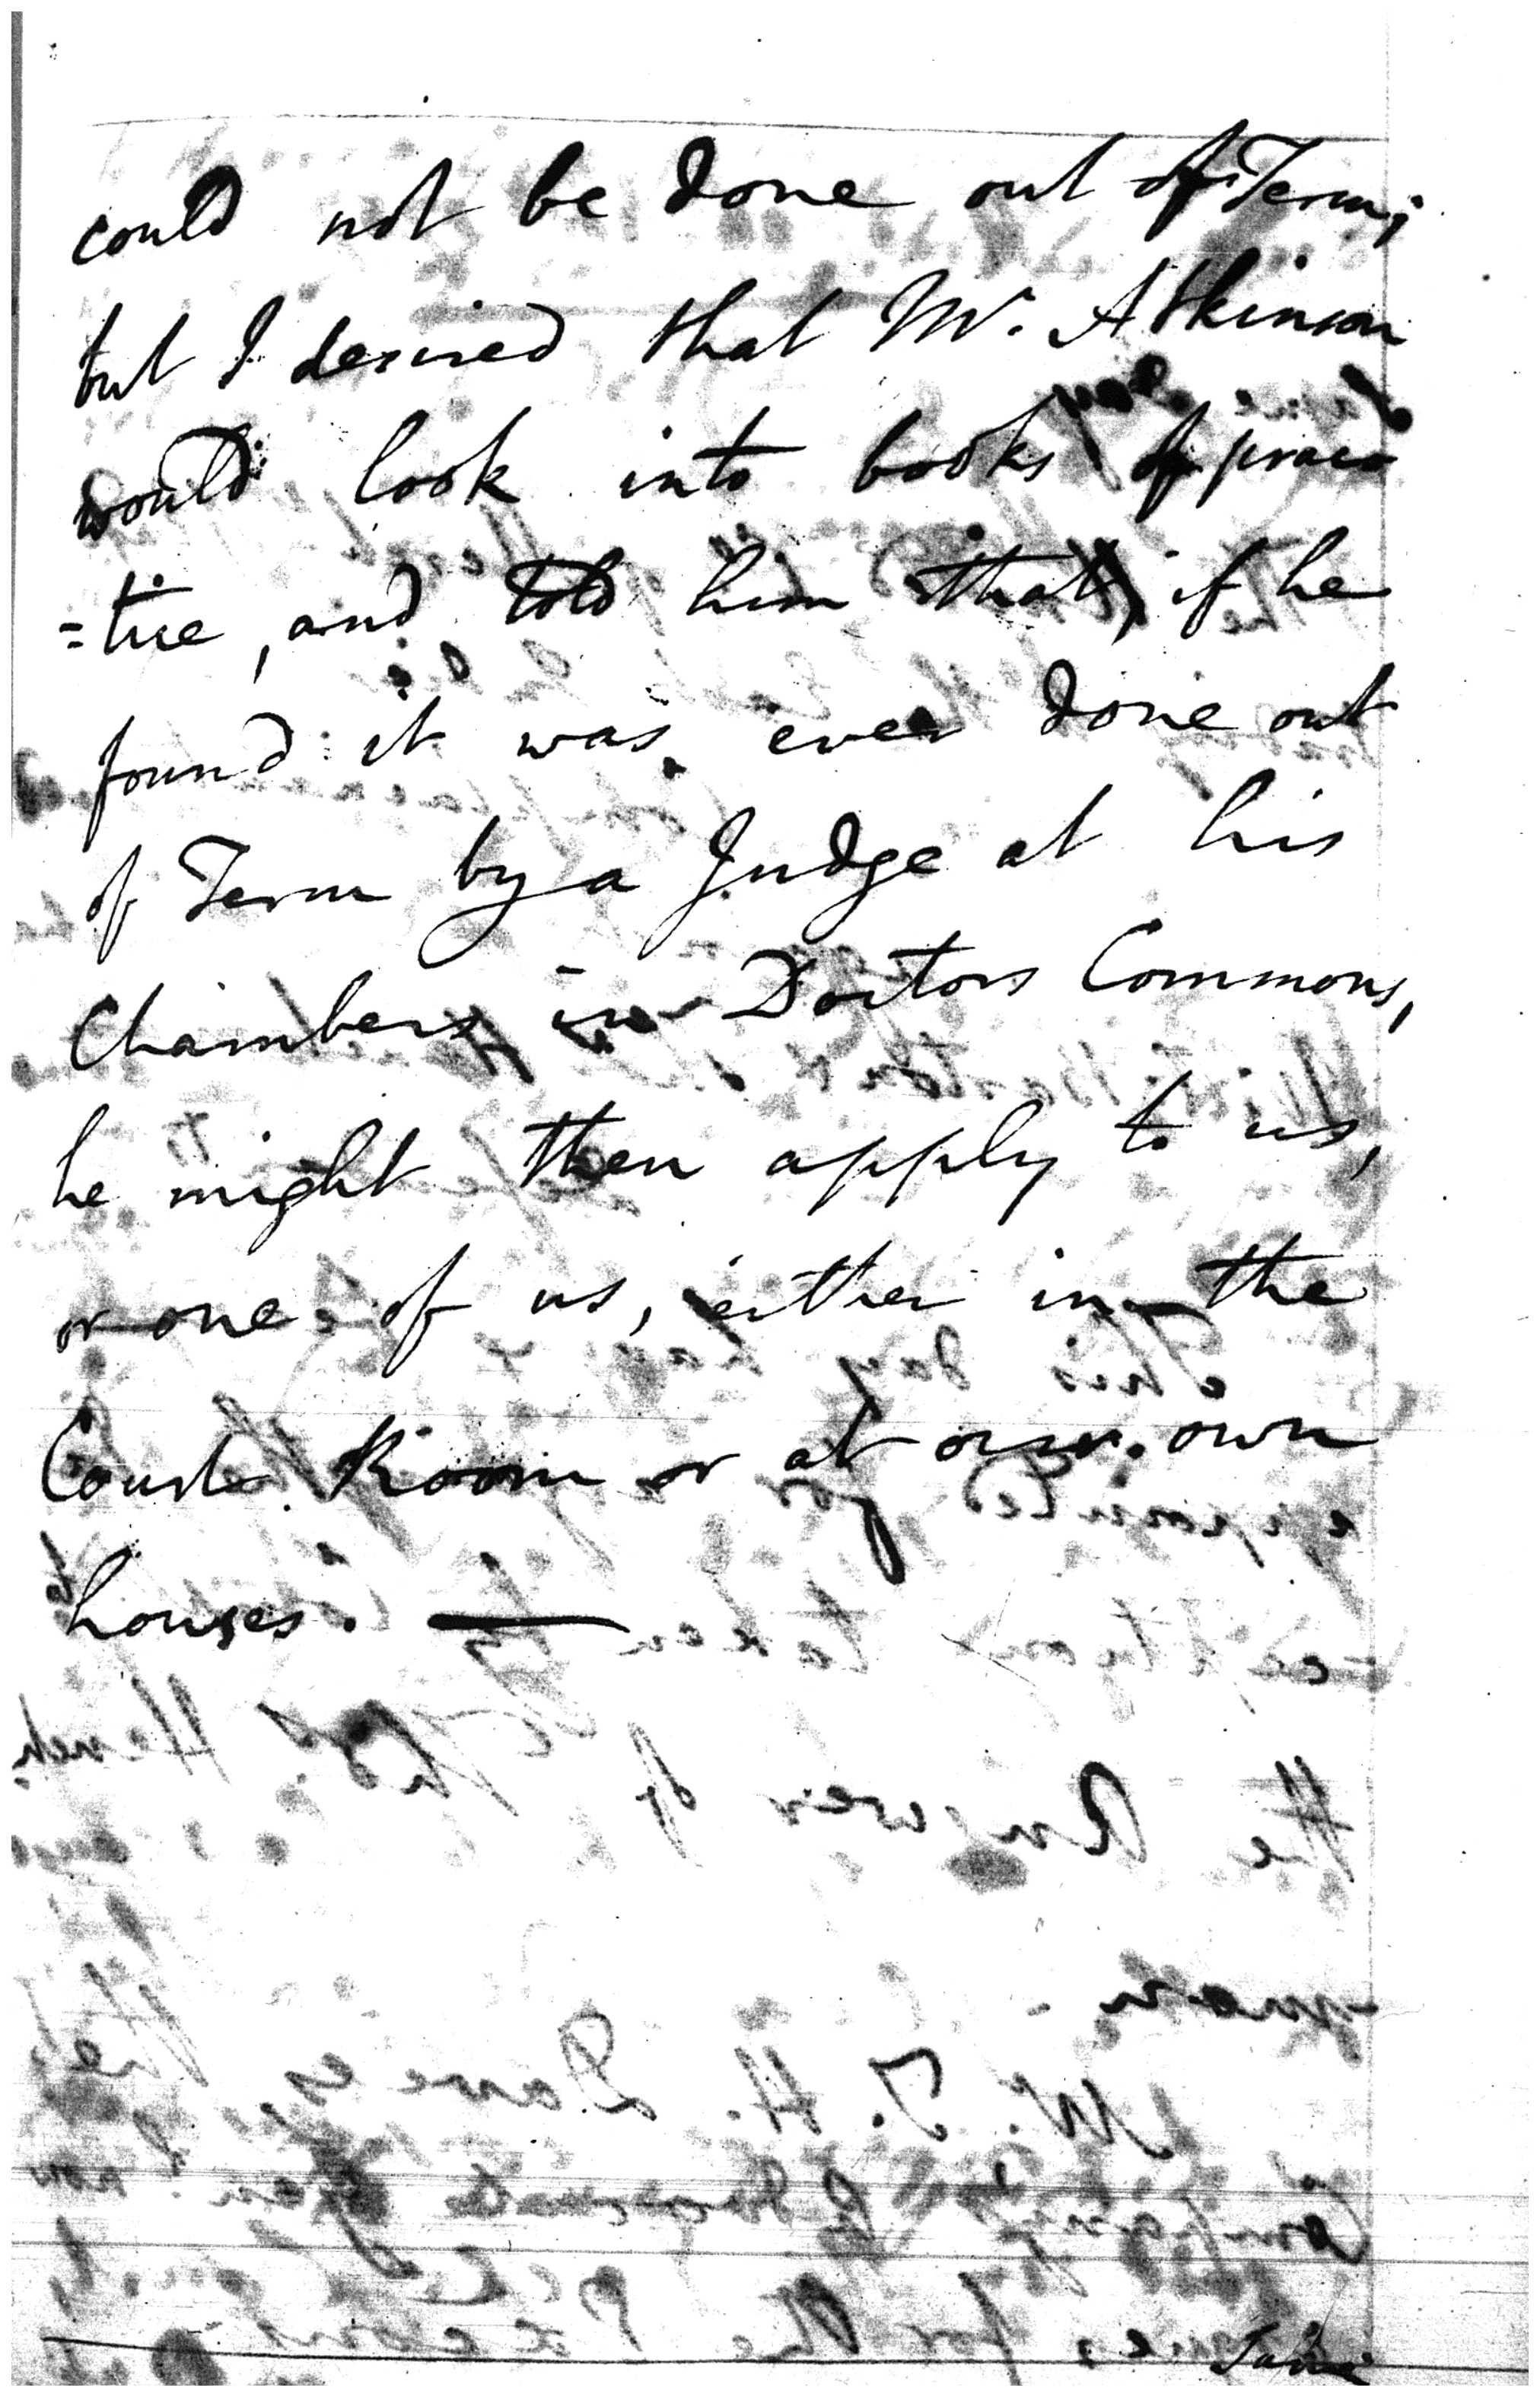 could not be done out of Term;
but I desired that Mr. Atkinson
would look into books of prac
=tice, and told him that, if he
found it was ever done out
of Term by a Judge at his
Chambers in Doctors Commons,
he might then apply to us,
or one of us, either in the
Court Room or at our own
houses. —